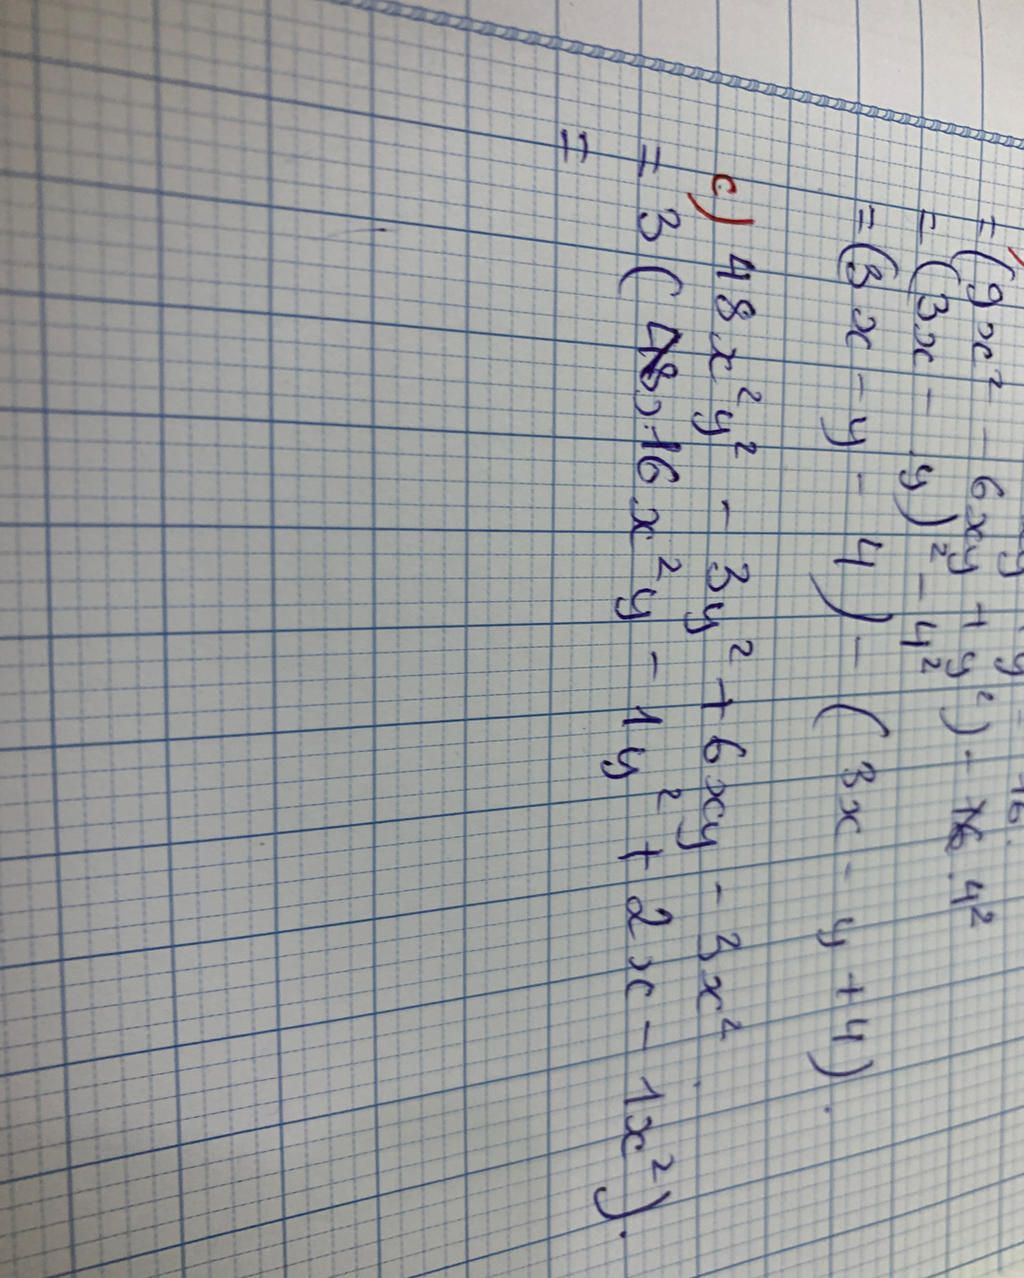 = (9x² - 6xy + y²) - 4²
= (3x - y)² - 4²
= (3x - y - 4) - (3x - y + 4).
c) 48x²y² - 3y² + 6xy - 3x²
= 3 (16x²y - 1y² + 2x - 1x²).
=